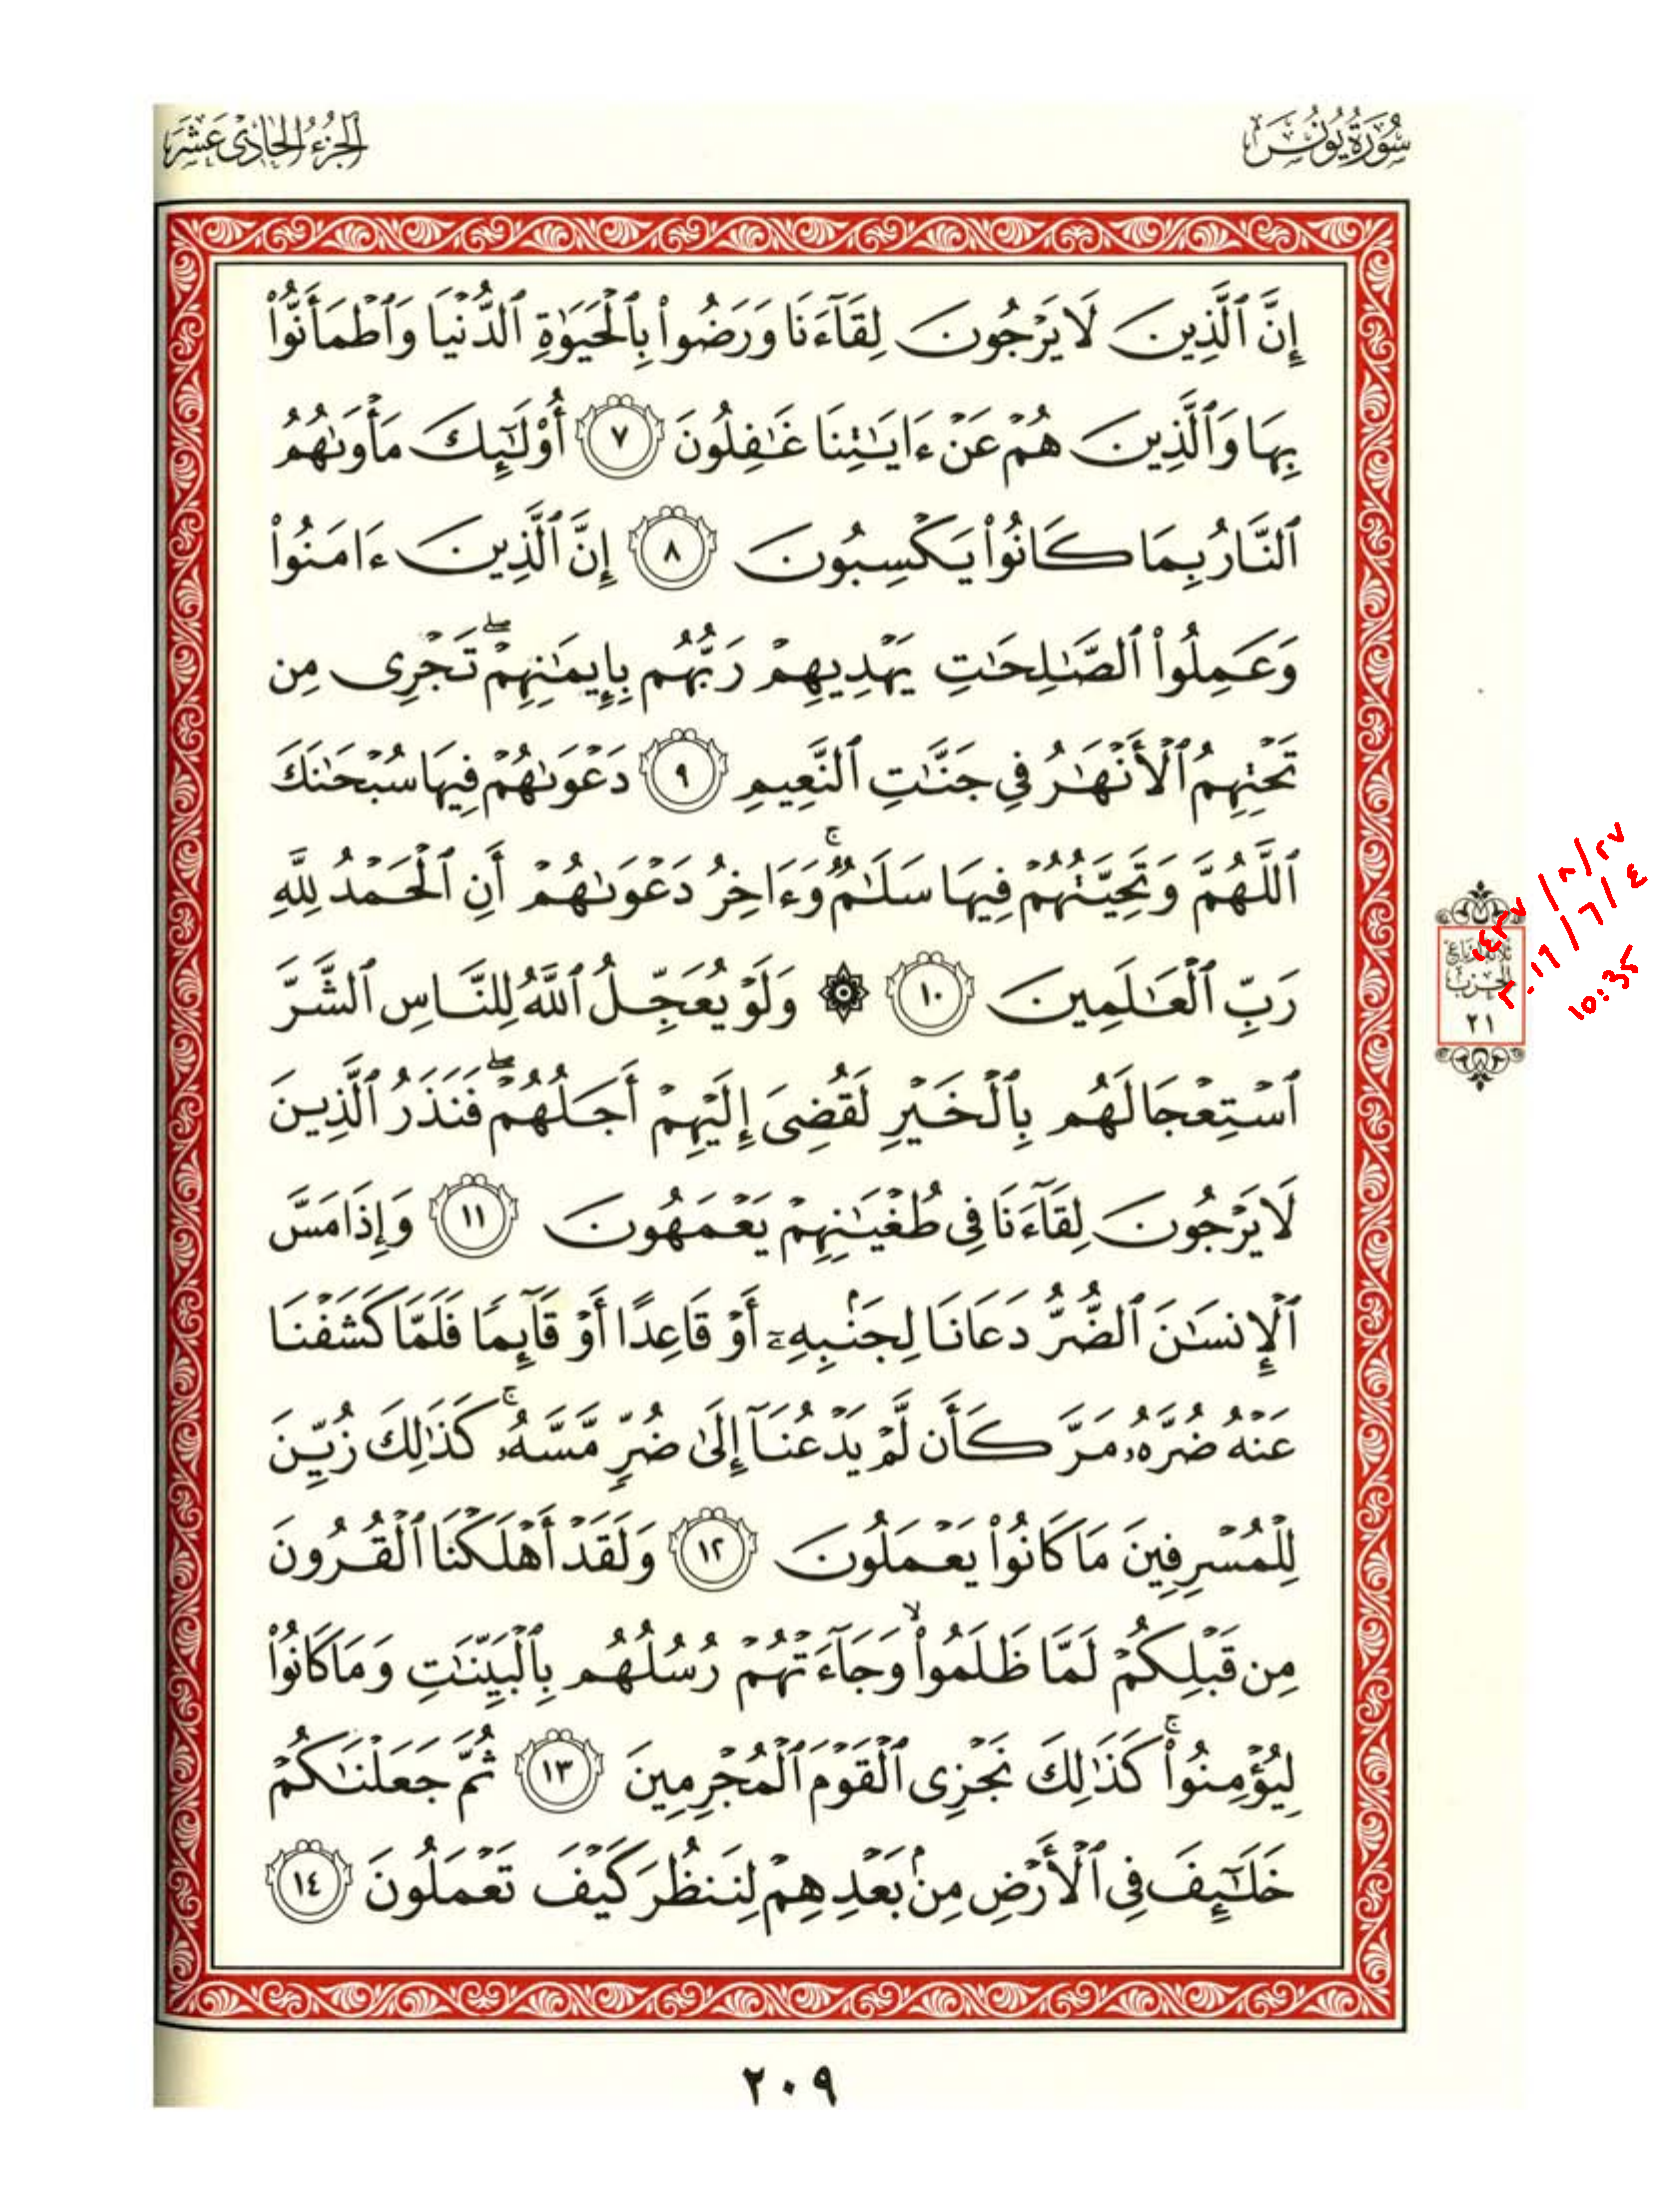 سُورَةُ يُونُسَ
الجُزْءُ الحَادِى عَشَرَ
إِنَّ ٱلَّذِينَ لَا يَرْجُونَ لِقَآءَنَا وَرَضُوا۟ بِٱلْحَيَوٰةِ ٱلدُّنْيَا وَٱطْمَأَنُّوا۟
بِهَا وَٱلَّذِينَ هُمْ عَنْ ءَايَـٰتِنَا غَـٰفِلُونَ ٧ أُو۟لَـٰٓئِكَ مَأْوَىٰهُمُ
ٱلنَّارُ بِمَا كَانُوا۟ يَكْسِبُونَ ٨ إِنَّ ٱلَّذِينَ ءَامَنُوا۟
وَعَمِلُوا۟ ٱلصَّـٰلِحَـٰتِ يَهْدِيهِمْ رَبُّهُم بِإِيمَـٰنِهِمْ ۖ تَجْرِى مِن
تَحْتِهِمُ ٱلْأَنْهَـٰرُ فِى جَنَّـٰتِ ٱلنَّعِيمِ ٩ دَعْوَىٰهُمْ فِيهَا سُبْحَـٰنَكَ
ٱللَّهُمَّ وَتَحِيَّتُهُمْ فِيهَا سَلَـٰمٌ ۚ وَءَاخِرُ دَعْوَىٰهُمْ أَنِ ٱلْحَمْدُ لِلَّهِ
رَبِّ ٱلْعَـٰلَمِينَ ١٠ ۞ وَلَوْ يُعَجِّلُ ٱللَّهُ لِلنَّاسِ ٱلشَّرَّ
ٱسْتِعْجَالَهُم بِٱلْخَيْرِ لَقُضِىَ إِلَيْهِمْ أَجَلُهُمْ ۖ فَنَذَرُ ٱلَّذِينَ
لَا يَرْجُونَ لِقَآءَنَا فِى طُغْيَـٰنِهِمْ يَعْمَهُونَ ١١ وَإِذَا مَسَّ
ٱلْإِنسَـٰنَ ٱلضُّرُّ دَعَانَا لِجَنۢبِهِۦٓ أَوْ قَاعِدًا أَوْ قَآئِمًا فَلَمَّا كَشَفْنَا
عَنْهُ ضُرَّهُۥ مَرَّ كَأَن لَّمْ يَدْعُنَآ إِلَىٰ ضُرٍّ مَّسَّهُۥ ۚ كَذَٰلِكَ زُيِّنَ
لِلْمُسْرِفِينَ مَا كَانُوا۟ يَعْمَلُونَ ١٢ وَلَقَدْ أَهْلَكْنَا ٱلْقُرُونَ
مِن قَبْلِكُمْ لَمَّا ظَلَمُوا۟ ۙ وَجَآءَتْهُمْ رُسُلُهُم بِٱلْبَيِّنَـٰتِ وَمَا كَانُوا۟
لِيُؤْمِنُوا۟ ۚ كَذَٰلِكَ نَجْزِى ٱلْقَوْمَ ٱلْمُجْرِمِينَ ١٣ ثُمَّ جَعَلْنَـٰكُمْ
خَلَـٰٓئِفَ فِى ٱلْأَرْضِ مِنۢ بَعْدِهِمْ لِنَنظُرَ كَيْفَ تَعْمَلُونَ ١٤
ثلاثة أرباع
الحزب
٢١
٢٠١٦/٦/٤
10:35
٢٠٩